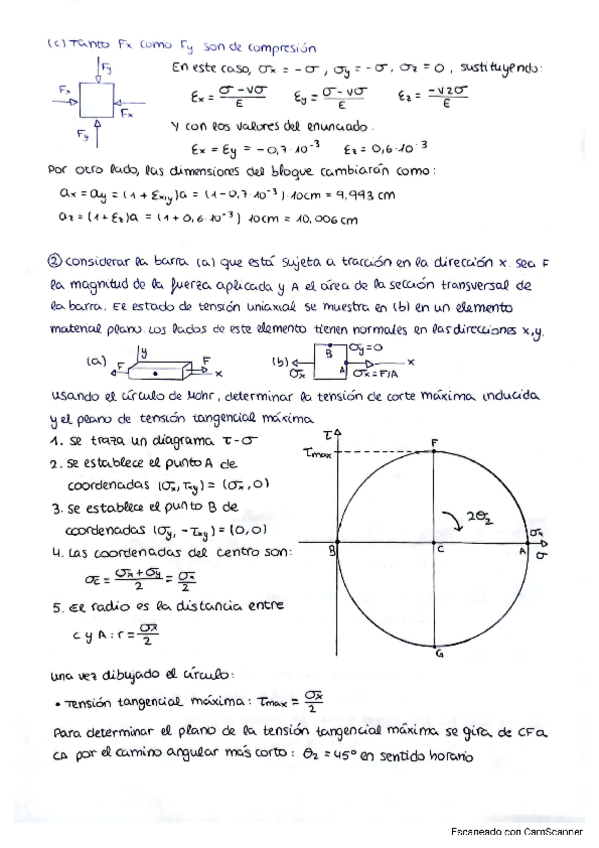 (c) Tanto Fx como Fy son de compresión
Fy
Fx
Fx
Fy
En este caso, σx = -σ, σy = -σ, σz = 0, sustituyendo:
εx = σ-vσ/E εy = σ-vσ/E εz = -v2σ/E
Y con los valores del enunciado.
εx = εy = -0,7·10⁻³ εz = 0,6·10⁻³
Por otro lado, las dimensiones del bloque cambiarán como:
ax = ay = (1 + εx,y)a = (1-0,7·10⁻³) 10cm = 9,993 cm
az = (1+εz)a = (1+0,6·10⁻³) 10cm = 10,006cm
② considerar la barra (a) que está sujeta a tracción en la dirección x. Sea F
la magnitud de la fuerza aplicada y A el área de la sección transversal de
la barra. El estado de tensión uniaxial se muestra en (b) en un elemento
material plano. Los lados de este elemento tienen normales en las direcciones x,y.
(a) F y F x
(b) σx B σy=0 A x σx=F/A
usando el círculo de Mohr, determinar la tensión de corte máxima inducida
y el plano de tensión tangencial máxima
1. se traza un diagrama τ-σ
2. se establece el punto A de
coordenadas (σx, τxy) = (σx, 0)
3. se establece el punto B de
coordenadas (σy, -τxy) = (0,0)
4. Las coordenadas del centro son:
σc = σx+σy/2 = σx/2
5. El radio es la distancia entre
C y A: r = σx/2
τ
τmax
F
2θ2
B
C
A
σx
σ
G
una vez dibujado el círculo:
• Tensión tangencial máxima: τmax = σx/2
Para determinar el plano de la tensión tangencial máxima se gira de CF a
CA por el camino angular más corto: θ2 = 45º en sentido horario
Escaneado con CamScanner